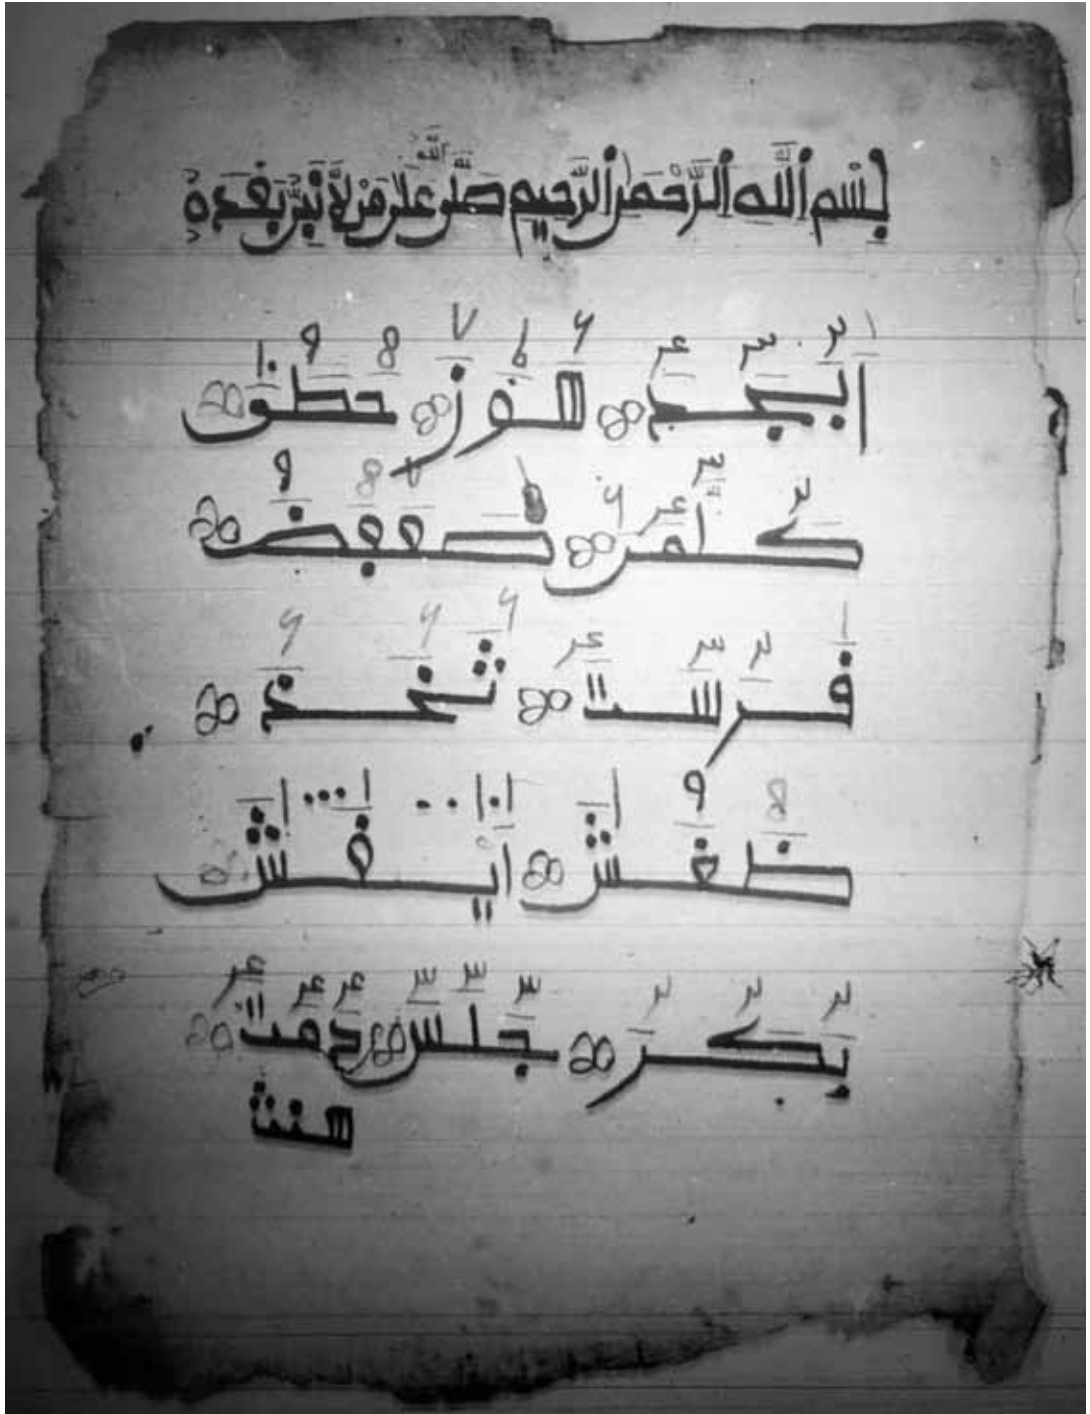 بِسْمِ اللَّهِ الرَّحْمَٰنِ الرَّحِيمِ صَلَّى اللَّهُ عَلَى مَن لَّا نَبِيَّ بَعْدَهُ
ابجد هوز حطي
كلمن صعفض
قرست ثخذ
ظغش ايقش
بكر جلس دمت
هنث